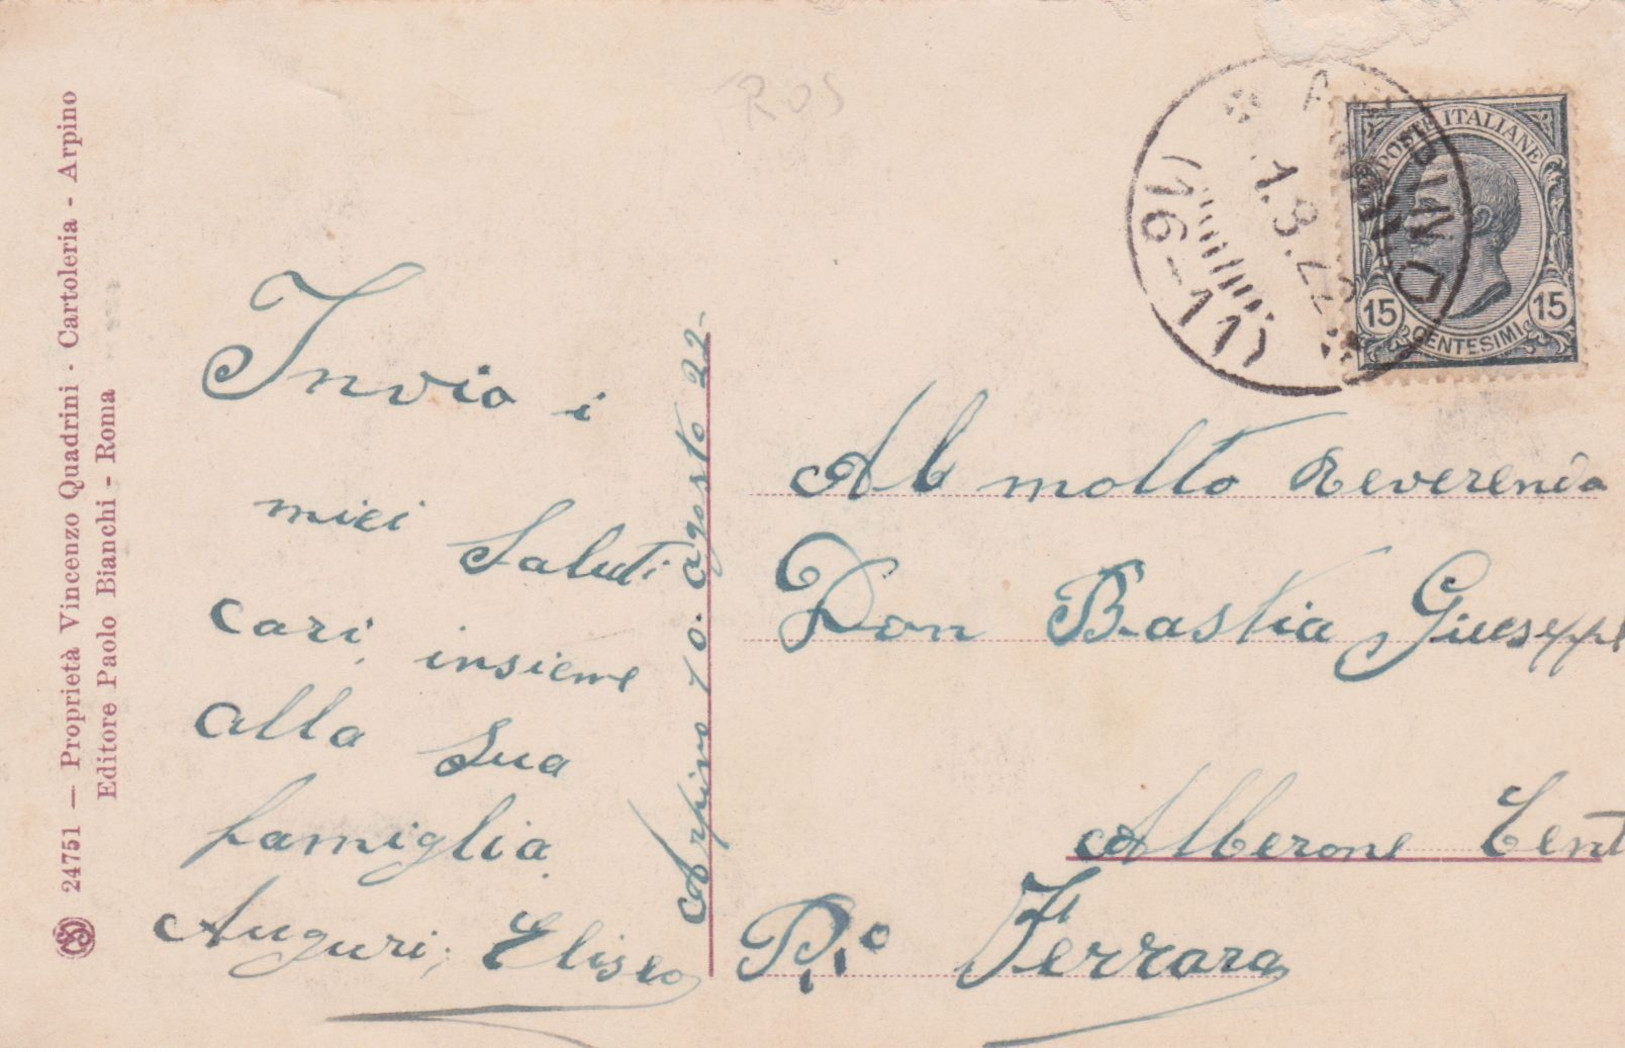 24751 — Proprietà Vincenzo Quadrini - Cartoleria - Arpino
Editore Paolo Bianchi - Roma
ROS
Invio i
miei saluti
cari, insieme
alla sua
famiglia.
Auguri; Eliseo
Arpino 10. agosto 22-
POSTE ITALIANE
15 15
CENTESIMI
(16-11)
Al molto Reverendo
Don Bastia Giuseppe
Alberone Cent
P.o Ferrara